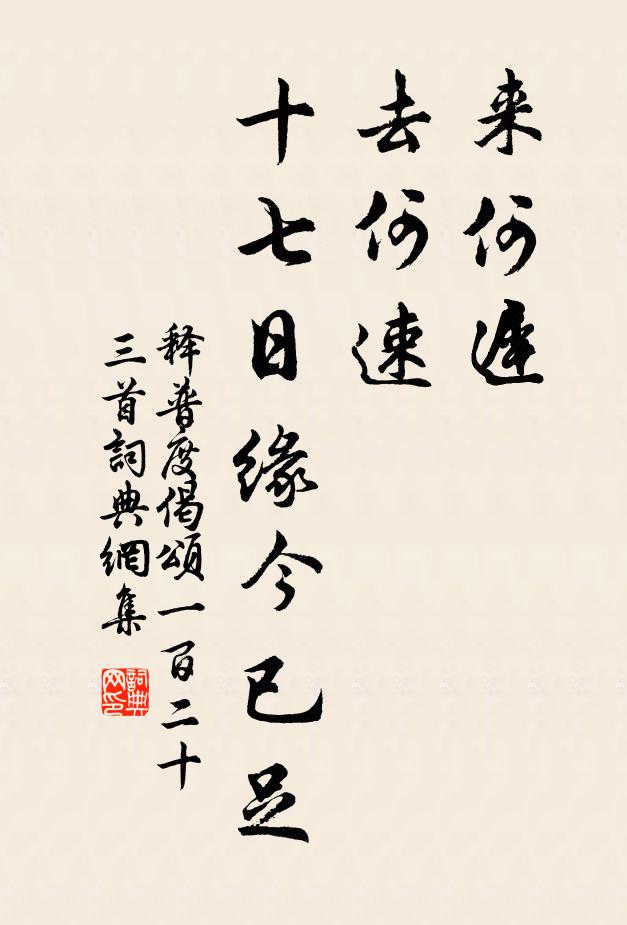 来何遲
去何速
十七日緣今已足
释普度偈頌一百二十
三首詞典網集
詞典网印